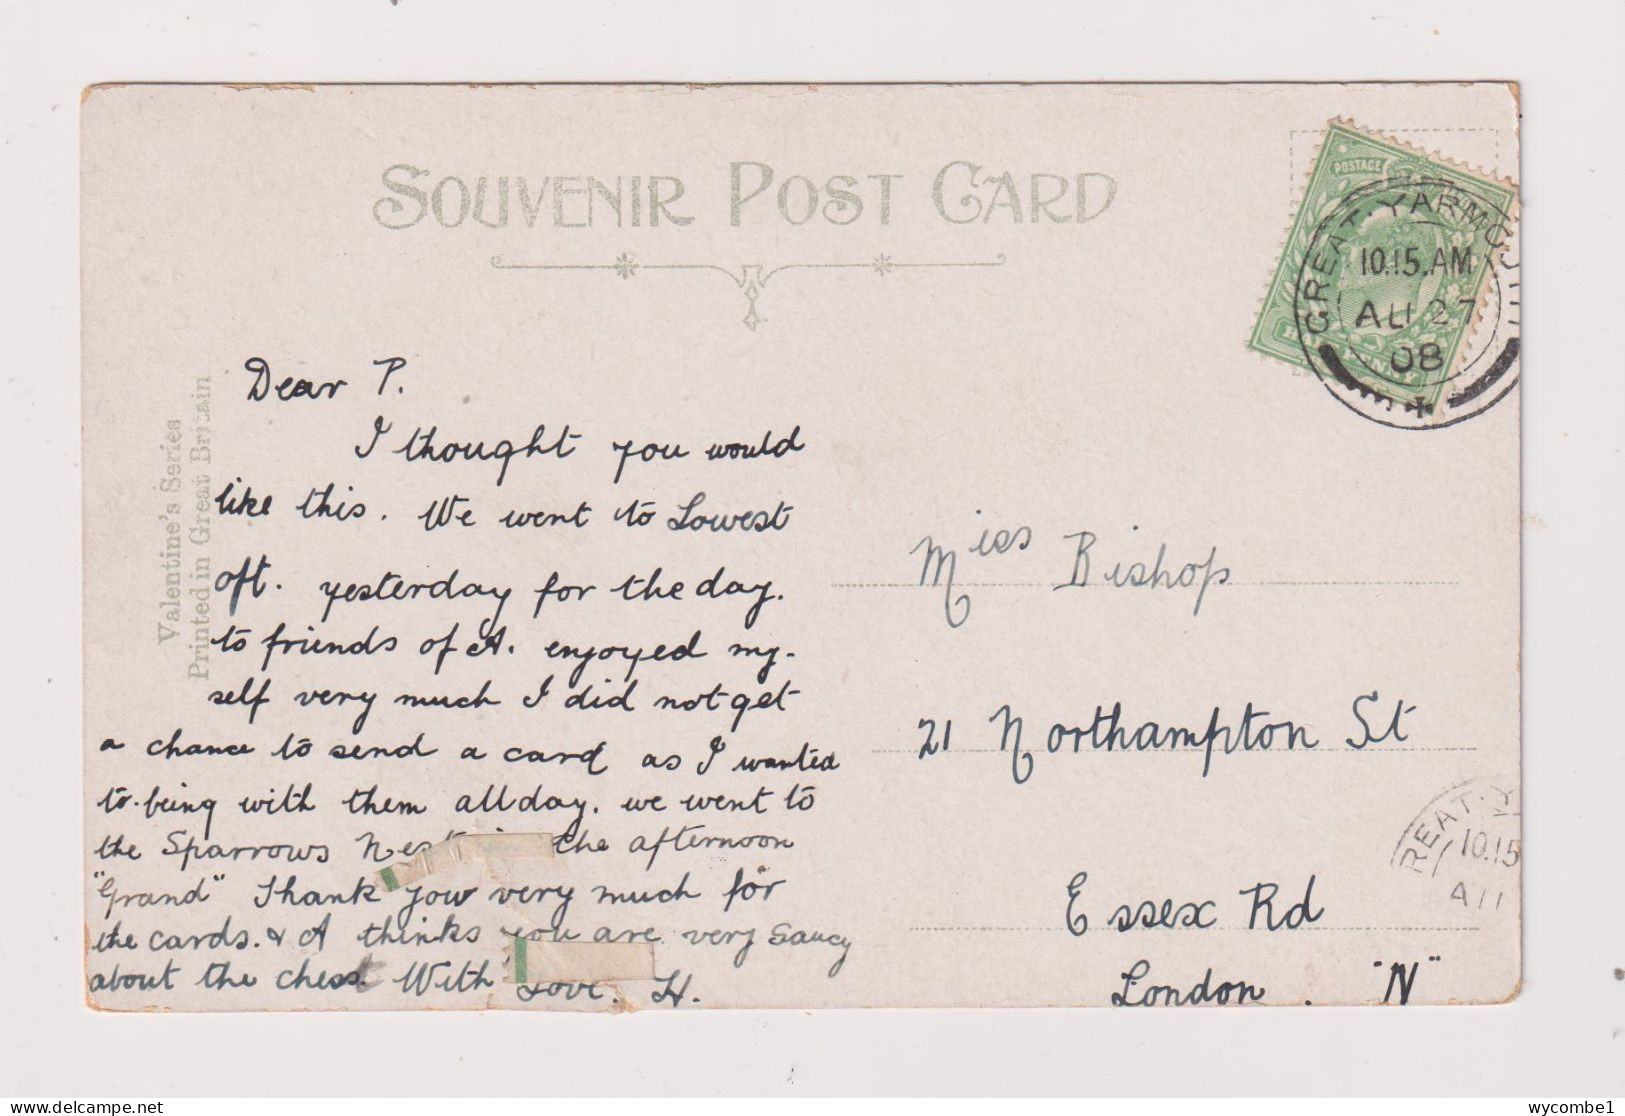 SOUVENIR POST CARD
POSTAGE
HALFPENNY
GREAT YARMOUTH
10.15.AM
AU 27
08
Valentine's Series
Printed in Great Britain
Dear P.
I thought you would
like this. We went to Lowest
oft. yesterday for the day.
to friends of A. enjoyed my-
self very much I did not get
a chance to send a card as I wanted
to being with them all day. we went to
the Sparrows Nest the afternoon
"Grand" Thank you very much for
the cards. & A thinks you are very saucy
about the chest. With Love. H.
Miss Bishop
21 Northampton St
Essex Rd
London. "N"
REAT. Y
10.15
AU
wycombe1